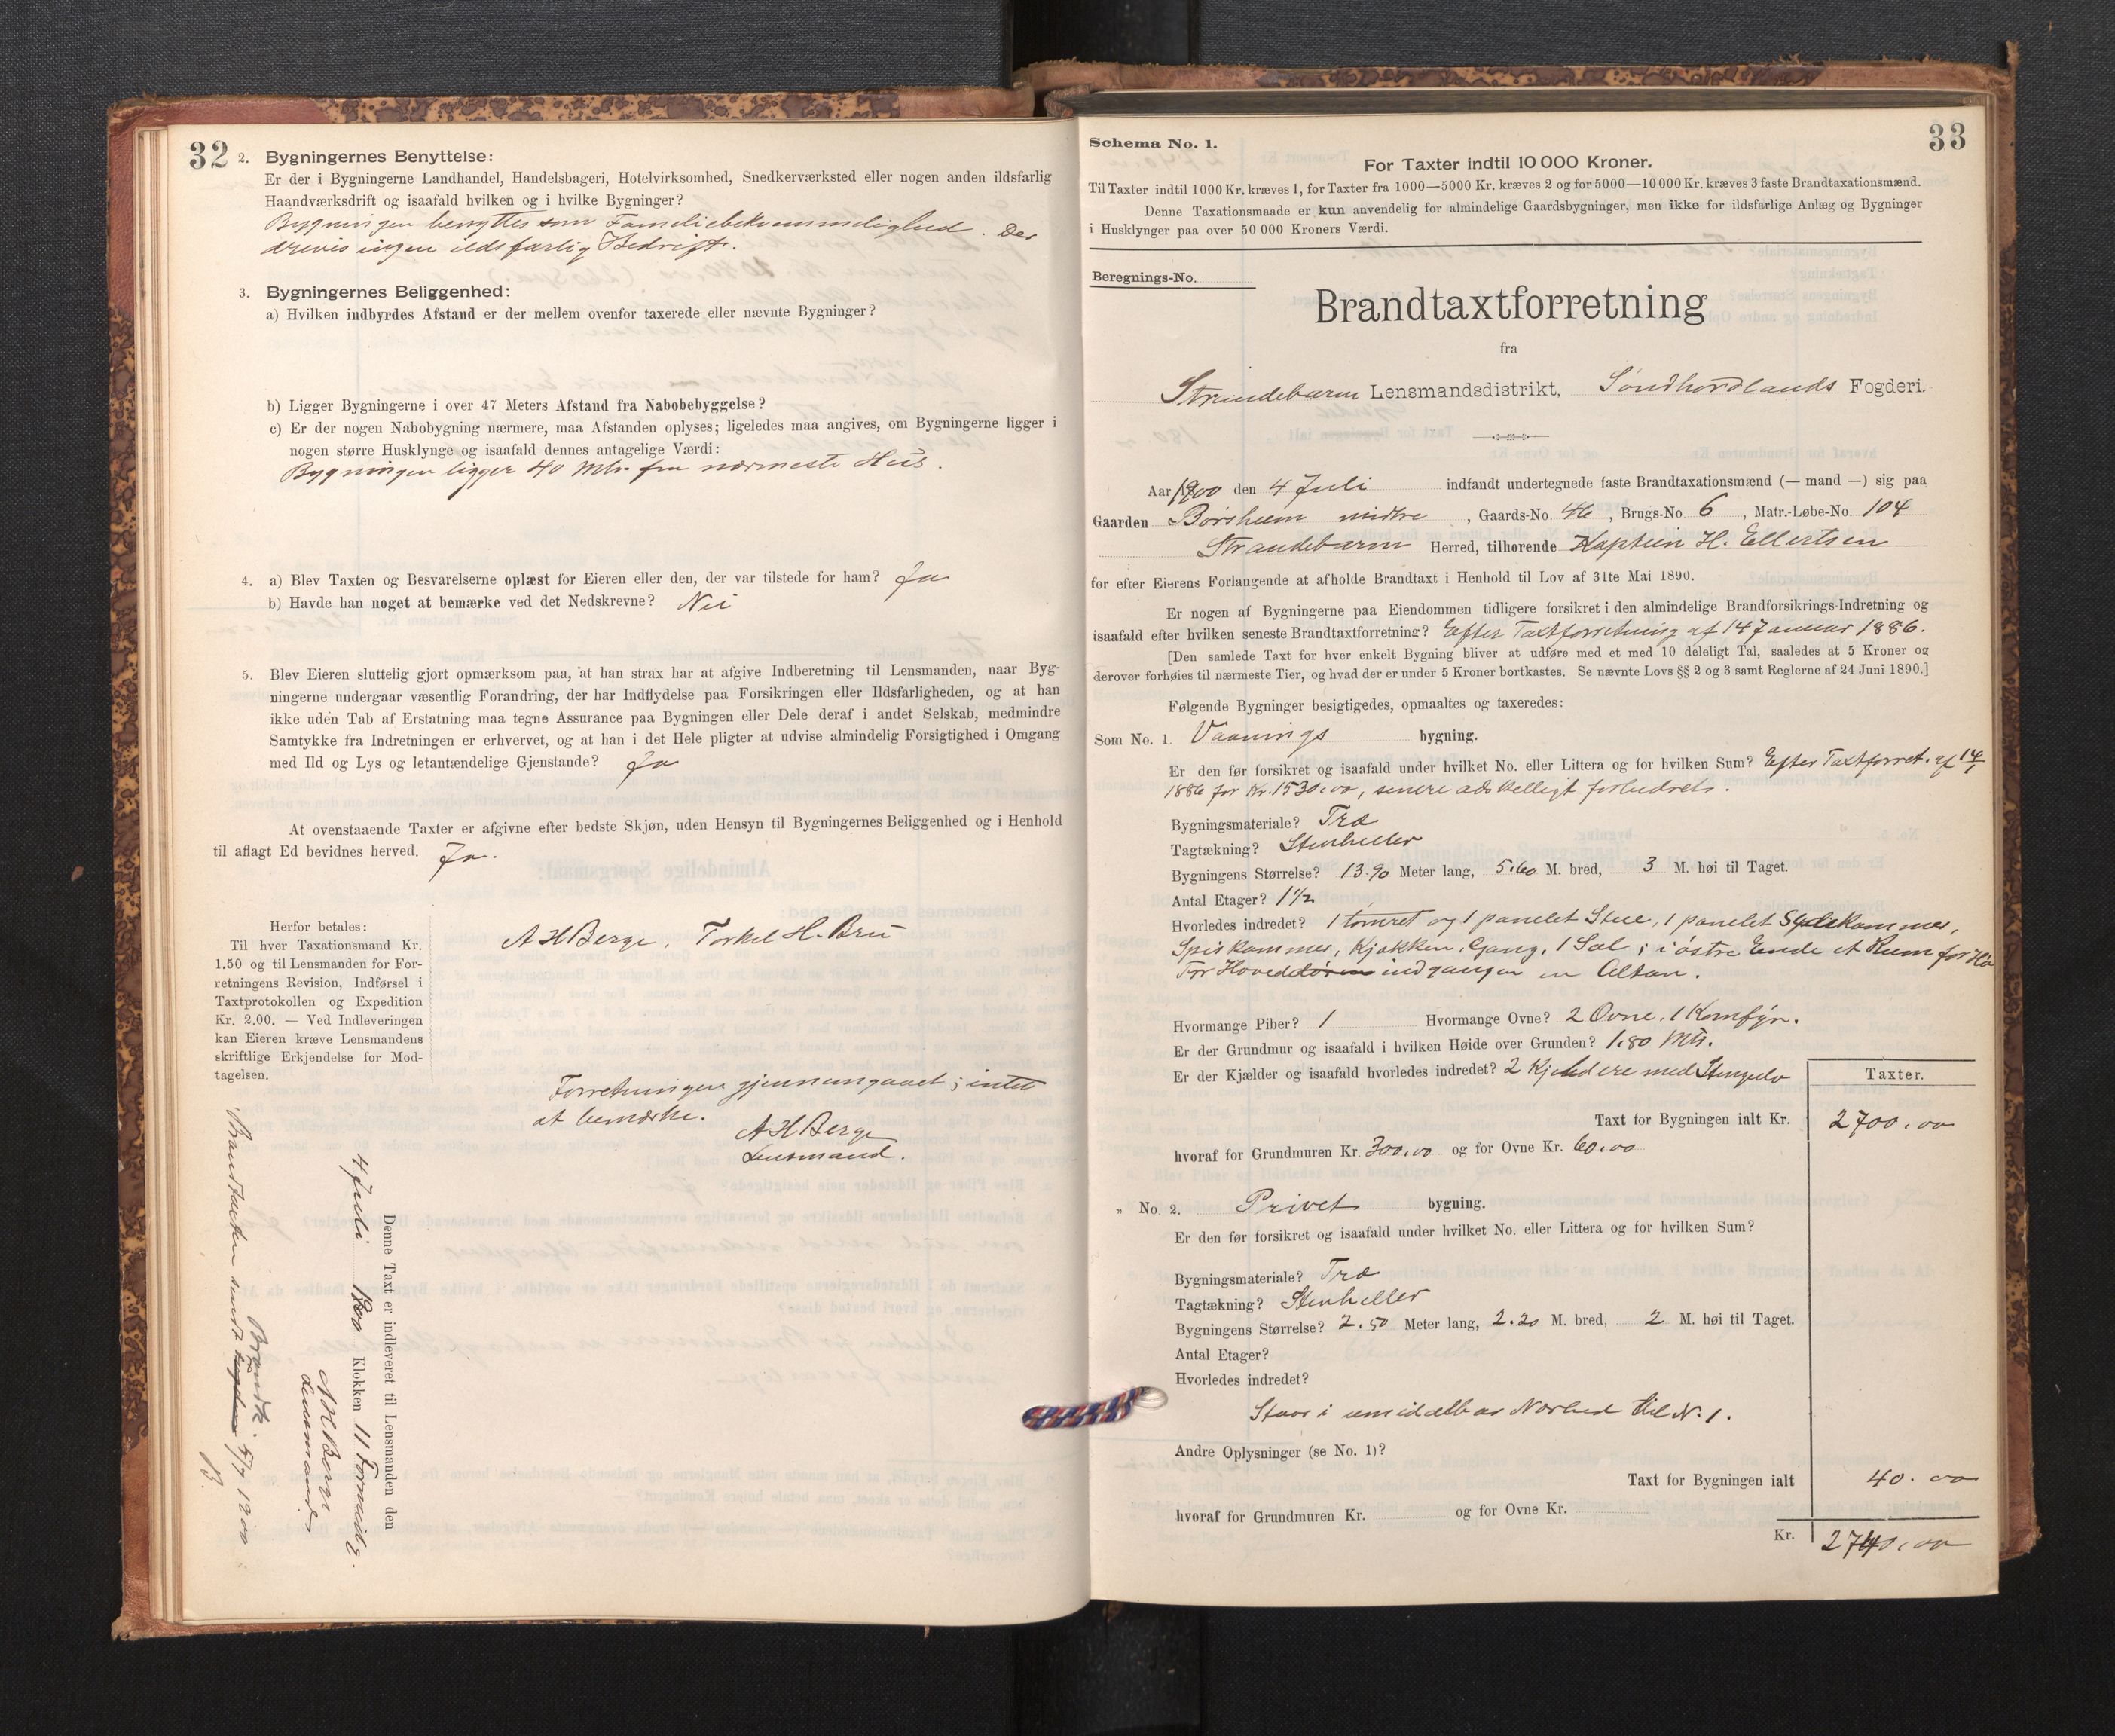 32
2. Bygningernes Benyttelse:
Er der i Bygningerne Landhandel, Handelsbageri, Hotelvirksomhed, Snedkerværksted eller nogen anden ildsfarlig
Haandværksdrift og isaafald hvilken og i hvilke Bygninger?
Bygningen benyttes som Familiebekvemmelighed. Der
drives ingen ildsfarlig Bedrift.
3. Bygningernes Beliggenhed:
a) Hvilken indbyrdes Afstand er der mellem ovenfor taxerede eller nævnte Bygninger?
b) Ligger Bygningerne i over 47 Meters Afstand fra Nabobebyggelse?
c) Er der nogen Nabobygning nærmere, maa Afstanden oplyses; ligeledes maa angives, om Bygningerne ligger i
nogen større Husklynge og isaafald dennes antagelige Værdi:
Bygningen ligger 40 Mtr. fra nærmeste Hus.
4. a) Blev Taxten og Besvarelserne oplæst for Eieren eller den, der var tilstede for ham? Ja
b) Havde han noget at bemærke ved det Nedskrevne? Nei
5. Blev Eieren sluttelig gjort opmærksom paa, at han strax har at afgive Indberetning til Lensmanden, naar Byg-
ningerne undergaar væsentlig Forandring, der har Indflydelse paa Forsikringen eller Ildsfarligheden, og at han
ikke uden Tab af Erstatning maa tegne Assurance paa Bygningen eller Dele deraf i andet Selskab, medmindre
Samtykke fra Indretningen er erhvervet, og at han i det Hele pligter at udvise almindelig Forsigtighed i Omgang
med Ild og Lys og letantændelige Gjenstande? Ja
At ovenstaaende Taxter er afgivne efter bedste Skjøn, uden Hensyn til Bygningernes Beliggenhed og i Henhold
til aflagt Ed bevidnes herved. Ja.
Herfor betales:
Til hver Taxationsmand Kr.
1.50 og til Lensmanden for For-
retningens Revision, Indførsel i
Taxtprotokollen og Expedition
Kr. 2.00. — Ved Indleveringen
kan Eieren kræve Lensmandens
skriftlige Erkjendelse for Mod-
tagelsen.
A H Berge. Torkel H. Bru
Forretningen gjennemgaaet; intet
at bemærke.
A H Berge
Lensmand.
Denne Taxt er indleveret til Lensmanden den
4 Juli 1900 Klokken 11 Formidg.
A H Berge
Lensmand
Brandtaxten sendt 5/7 1900
B.
33
Schema No. 1.
For Taxter indtil 10 000 Kroner.
Til Taxter indtil 1000 Kr. kræves 1, for Taxter fra 1000—5000 Kr. kræves 2 og for 5000—10 000 Kr. kræves 3 faste Brandtaxationsmænd.
Denne Taxationsmaade er kun anvendelig for almindelige Gaardsbygninger, men ikke for ildsfarlige Anlæg og Bygninger
i Husklynger paa over 50 000 Kroners Værdi.
Beregnings-No.
Brandtaxtforretning
fra
Strandebarm Lensmandsdistrikt, Søndhordlands Fogderi.
Aar 1900 den 4 Juli indfandt undertegnede faste Brandtaxationsmænd (— mand —) sig paa
Gaarden Børsheim midtre, Gaards-No. 46, Brugs-No. 6, Matr.-Løbe-No. 104
Strandebarm Herred, tilhørende Kaptein H. Ellertsen
for efter Eierens Forlangende at afholde Brandtaxt i Henhold til Lov af 31te Mai 1890.
Er nogen af Bygningerne paa Eiendommen tidligere forsikret i den almindelige Brandforsikrings-Indretning og
isaafald efter hvilken seneste Brandtaxtforretning? Efter Taxtforretning af 14 Januar 1886.
[Den samlede Taxt for hver enkelt Bygning bliver at udføre med et med 10 deleligt Tal, saaledes at 5 Kroner og
derover forhøies til nærmeste Tier, og hvad der er under 5 Kroner bortkastes. Se nævnte Lovs §§ 2 og 3 samt Reglerne af 24 Juni 1890.]
Følgende Bygninger besigtigedes, opmaaltes og taxeredes:
Som No. 1. Vaanings bygning.
Er den før forsikret og isaafald under hvilket No. eller Littera og for hvilken Sum? Efter Taxtforret. af 14/1
1886 for Kr. 1530.00, senere adskelligt forbedret.
Bygningsmateriale? Træ
Tagtækning? Stenheller
Bygningens Størrelse? 13.70 Meter lang, 5.60 M. bred, 3 M. høi til Taget.
Antal Etager? 1½
Hvorledes indredet? 1 tømret og 1 panelet Stue, 1 panelet Sydekammer,
Spiskammer, Kjøkken, Gang, 1 Sal; i østre Ende et Rum for Hø
For Hovedindgangen en Altan.
Hvormange Piber? 1 Hvormange Ovne? 2 Ovne, 1 Komfyr.
Er der Grundmur og isaafald i hvilken Høide over Grunden? 1.80 Mtr.
Er der Kjælder og isaafald hvorledes indredet? 2 Kjeldere med Stengulv
Taxter.
Taxt for Bygningen ialt Kr. 2700.00
hvoraf for Grundmuren Kr. 300.00 og for Ovne Kr. 60.00
„ No. 2. Privet bygning.
Er den før forsikret og isaafald under hvilket No. eller Littera og for hvilken Sum?
Bygningsmateriale? Træ
Tagtækning? Stenheller
Bygningens Størrelse? 2.50 Meter lang, 2.20 M. bred, 2 M. høi til Taget.
Antal Etager?
Hvorledes indredet?
Staar i umiddelbar Nærhed til N. 1.
Andre Oplysninger (se No. 1)?
Taxt for Bygningen ialt 40.00
hvoraf for Grundmuren Kr. og for Ovne Kr.
Kr. 2740.00